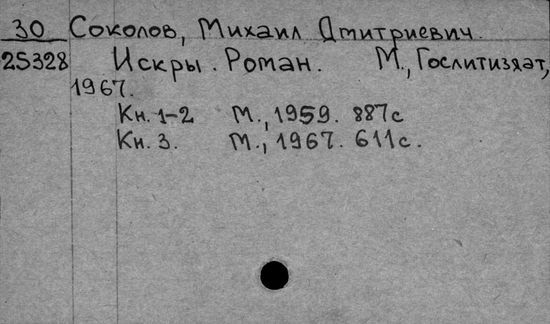 30 Соколов, Михаил Дмитриевич.
25328 Искры. Роман. М., Гослитиздат,
1967.
Кн. 1-2 М., 1959. 887с
Кн. 3. М., 1967. 611с.